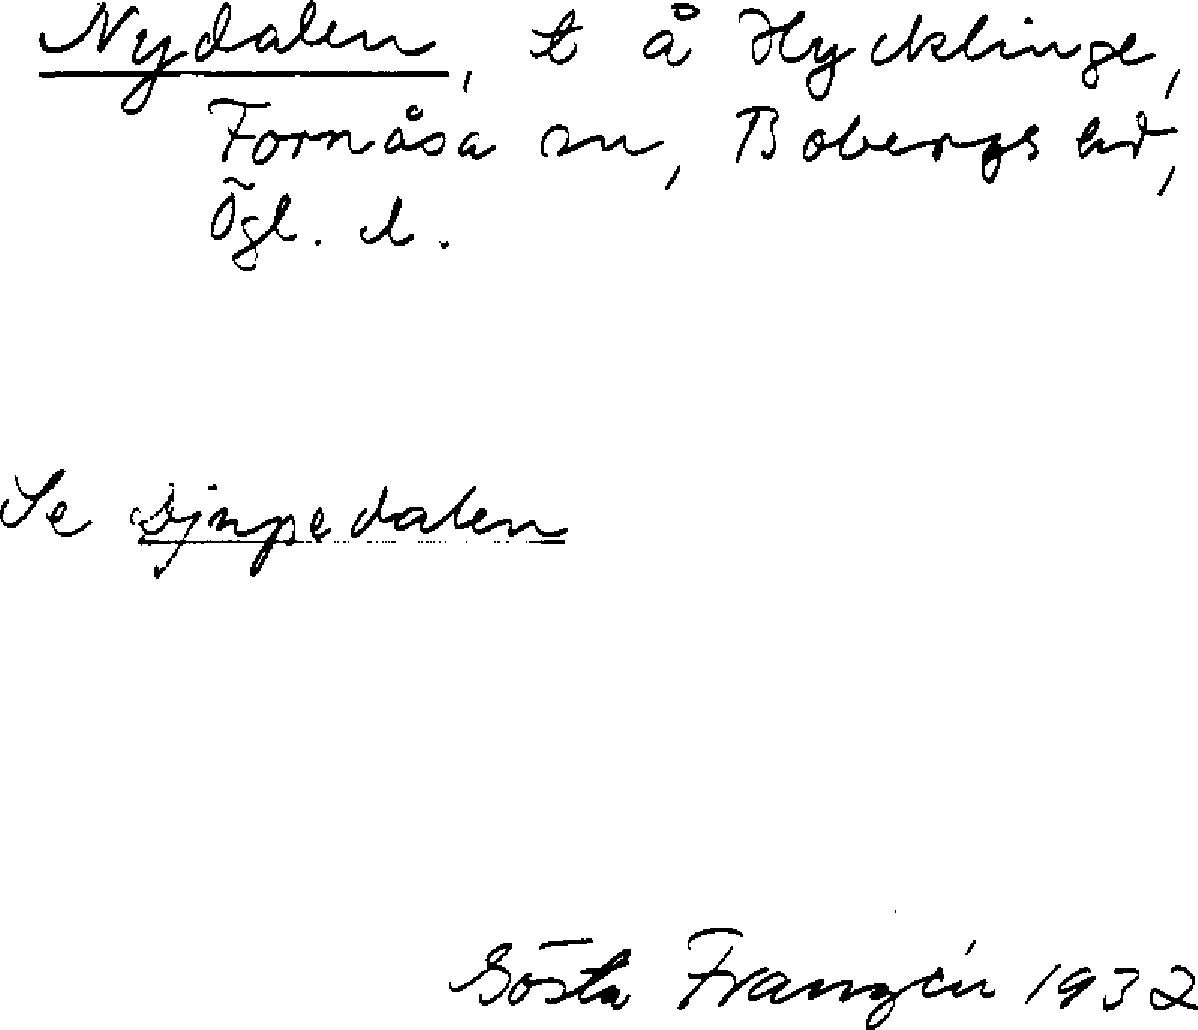 Nydalen, t å Hycklinge,
Fornåsa sn, Bobergs hd,
Ögl. l.
Se Djupedalen
Gösta Franzén 1932